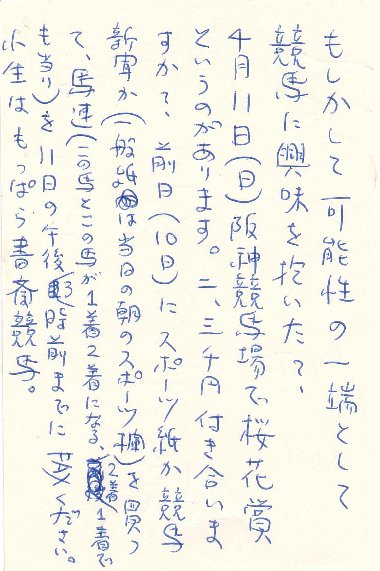 もしかして可能性の一端として
競馬に興味を抱いたて、
4月11日(日)阪神競馬場で桜花賞
というのがあります。二、三千円付き合いま
すかて、前日(10日)にスポーツ紙か競馬
新聞か(一般紙は当日の朝のスポーツ欄)を買っ
て、馬連(この馬とこの馬が1着2着になる、2着1着で
も当り)を11日の午後 時前までに 下さい。
小生はもっぱら書斎競馬。